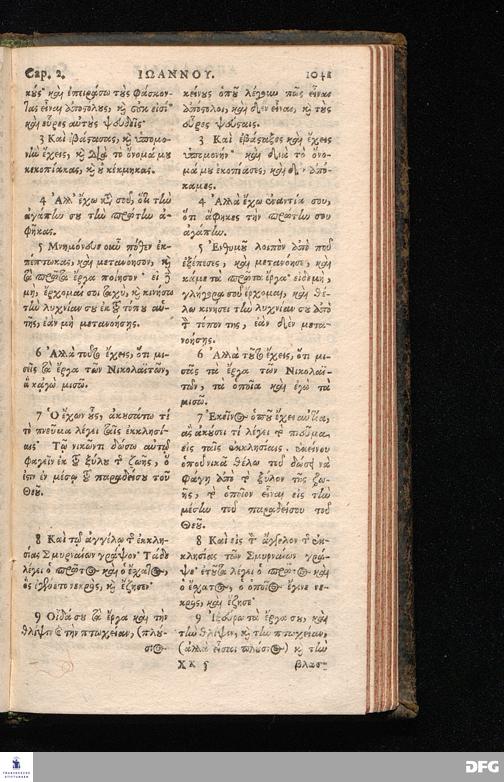 Cap. 2. ΙΩΑΝΝΟΥ. 1041
κοὺς καὶ ἐπειράσω τοὺς φάσκον-
τας εἶναι ἀποστόλους, καὶ οὐκ εἰσὶ
καὶ εὗρες αὐτοὺς ψευδεῖς
3 Καὶ ἐβάστασας, καὶ ὑπομο-
νὴν ἔχεις, καὶ διὰ τὸ ὄνομά μου
κεκοπίακας, καὶ οὐ κέκμηκας.
4 Ἀλλ' ἔχω κατὰ σοῦ, ὅτι τὴν
ἀγάπην σου τὴν πρώτην ἀ-
φῆκας.
5 Μνημόνευε οὖν πόθεν ἐκ-
πέπτωκας, καὶ μετανόησον, καὶ
τὰ πρῶτα ἔργα ποίησον· εἰ δὲ
μὴ, ἔρχομαί σοι ταχὺ, καὶ κινήσω
τὴν λυχνίαν σου ἐκ τοῦ τόπου αὐ-
τῆς, ἐὰν μὴ μετανοήσῃς.
6 Ἀλλὰ τοῦτο ἔχεις, ὅτι μι-
σεῖς τὰ ἔργα τῶν Νικολαϊτῶν,
ἃ κἀγὼ μισῶ.
7 Ὁ ἔχων οὖς, ἀκουσάτω τί
τὸ πνεῦμα λέγει ταῖς ἐκκλησί-
αις· Τῷ νικῶντι δώσω αὐτῷ
φαγεῖν ἐκ τοῦ ξύλου τῆς ζωῆς, ὅ
ἐστι ἐν μέσῳ τοῦ παραδείσου τοῦ
Θεοῦ.
8 Καὶ τῷ ἀγγέλῳ τῆς ἐκκλη-
σίας Σμυρναίων γράψον· Τάδε
λέγει ὁ πρῶτος καὶ ὁ ἔσχατος,
ὃς ἐγένετο νεκρὸς, καὶ ἔζησεν·
9 Οἶδά σου τὰ ἔργα καὶ τὴν
θλίψιν καὶ τὴν πτωχείαν, (πλού-
σιος
κείνους ὁποῦ λέγουν πῶς εἶναι
ἀπόστολοι, καὶ δὲν εἶναι, καὶ τοὺς
εὗρες ψεύσταις.
3 Καὶ ἐβάσταξες καὶ ἔχεις
ὑπομονήν· καὶ διὰ τὸ ὄνο-
μά μου ἐκοπίασες, καὶ δὲν ἀπό-
καμες.
4 Ἀλλὰ ἔχω ἐναντία σου,
ὅτι ἀφῆκες τὴν πρώτην σου
ἀγάπην.
5 Ἐνθυμοῦ λοιπὸν ἀπὸ ποῦ
ἐξέπεσες, καὶ μετανόησε, καὶ
κάμε τὰ πρῶτα ἔργα· εἰδεμὴ,
γλήγορα σοῦ ἔρχομαι, καὶ θέ-
λω κινήσει τὴν λυχνίαν σου ἀπὸ
τὸν τόπον της, ἐὰν δὲν μετα-
νοήσῃς.
6 Ἀλλὰ τοῦτο ἔχεις, ὅτι μι-
σᾷς τὰ ἔργα τῶν Νικολαϊ-
τῶν, τὰ ὁποῖα καὶ ἐγὼ τὰ
μισῶ.
7 Ἐκεῖνος ὁποῦ ἔχει αὐτία,
ἂς ἀκούσῃ τί λέγει τὸ πνεῦμα
εἰς ταῖς ἐκκλησίαις· ἐκείνου
ὁποῦ νικᾷ θέλω τοῦ δώσῃ νὰ
φάγῃ ἀπὸ τὸ ξύλον τῆς ζω-
ῆς, τὸ ὁποῖον εἶναι εἰς τὴν
μέσην τοῦ παραδείσου τοῦ
Θεοῦ.
8 Καὶ εἰς τὸν ἄγγελον τῆς ἐκ-
κλησίας τῶν Σμυρναίων γρά-
ψε· ἐτοῦτα λέγει ὁ πρῶτος καὶ
ὁ ἔσχατος, ὁ ὁποῖος ἔγινε νε-
κρὸς, καὶ ἔζησε·
9 Ἠξεύρω τὰ ἔργα σου, καὶ
τὴν θλίψιν, καὶ τὴν πτωχείαν,
(ἀλλὰ εἶσαι πλούσιος) καὶ τὴν
XX 5 βλασ-
FRANCKESCHE
STIFTUNGEN
DFG